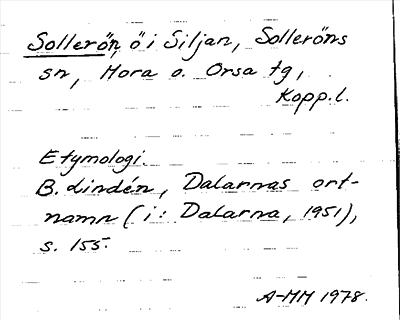 Sollerön, ö i Siljan, Solleröns
sn, Mora o. Orsa tg,
Kopp.l.
Etymologi.
B. Lindén, Dalarnas ort-
namn (i: Dalarna, 1951),
s. 155.
A-MM 1978.